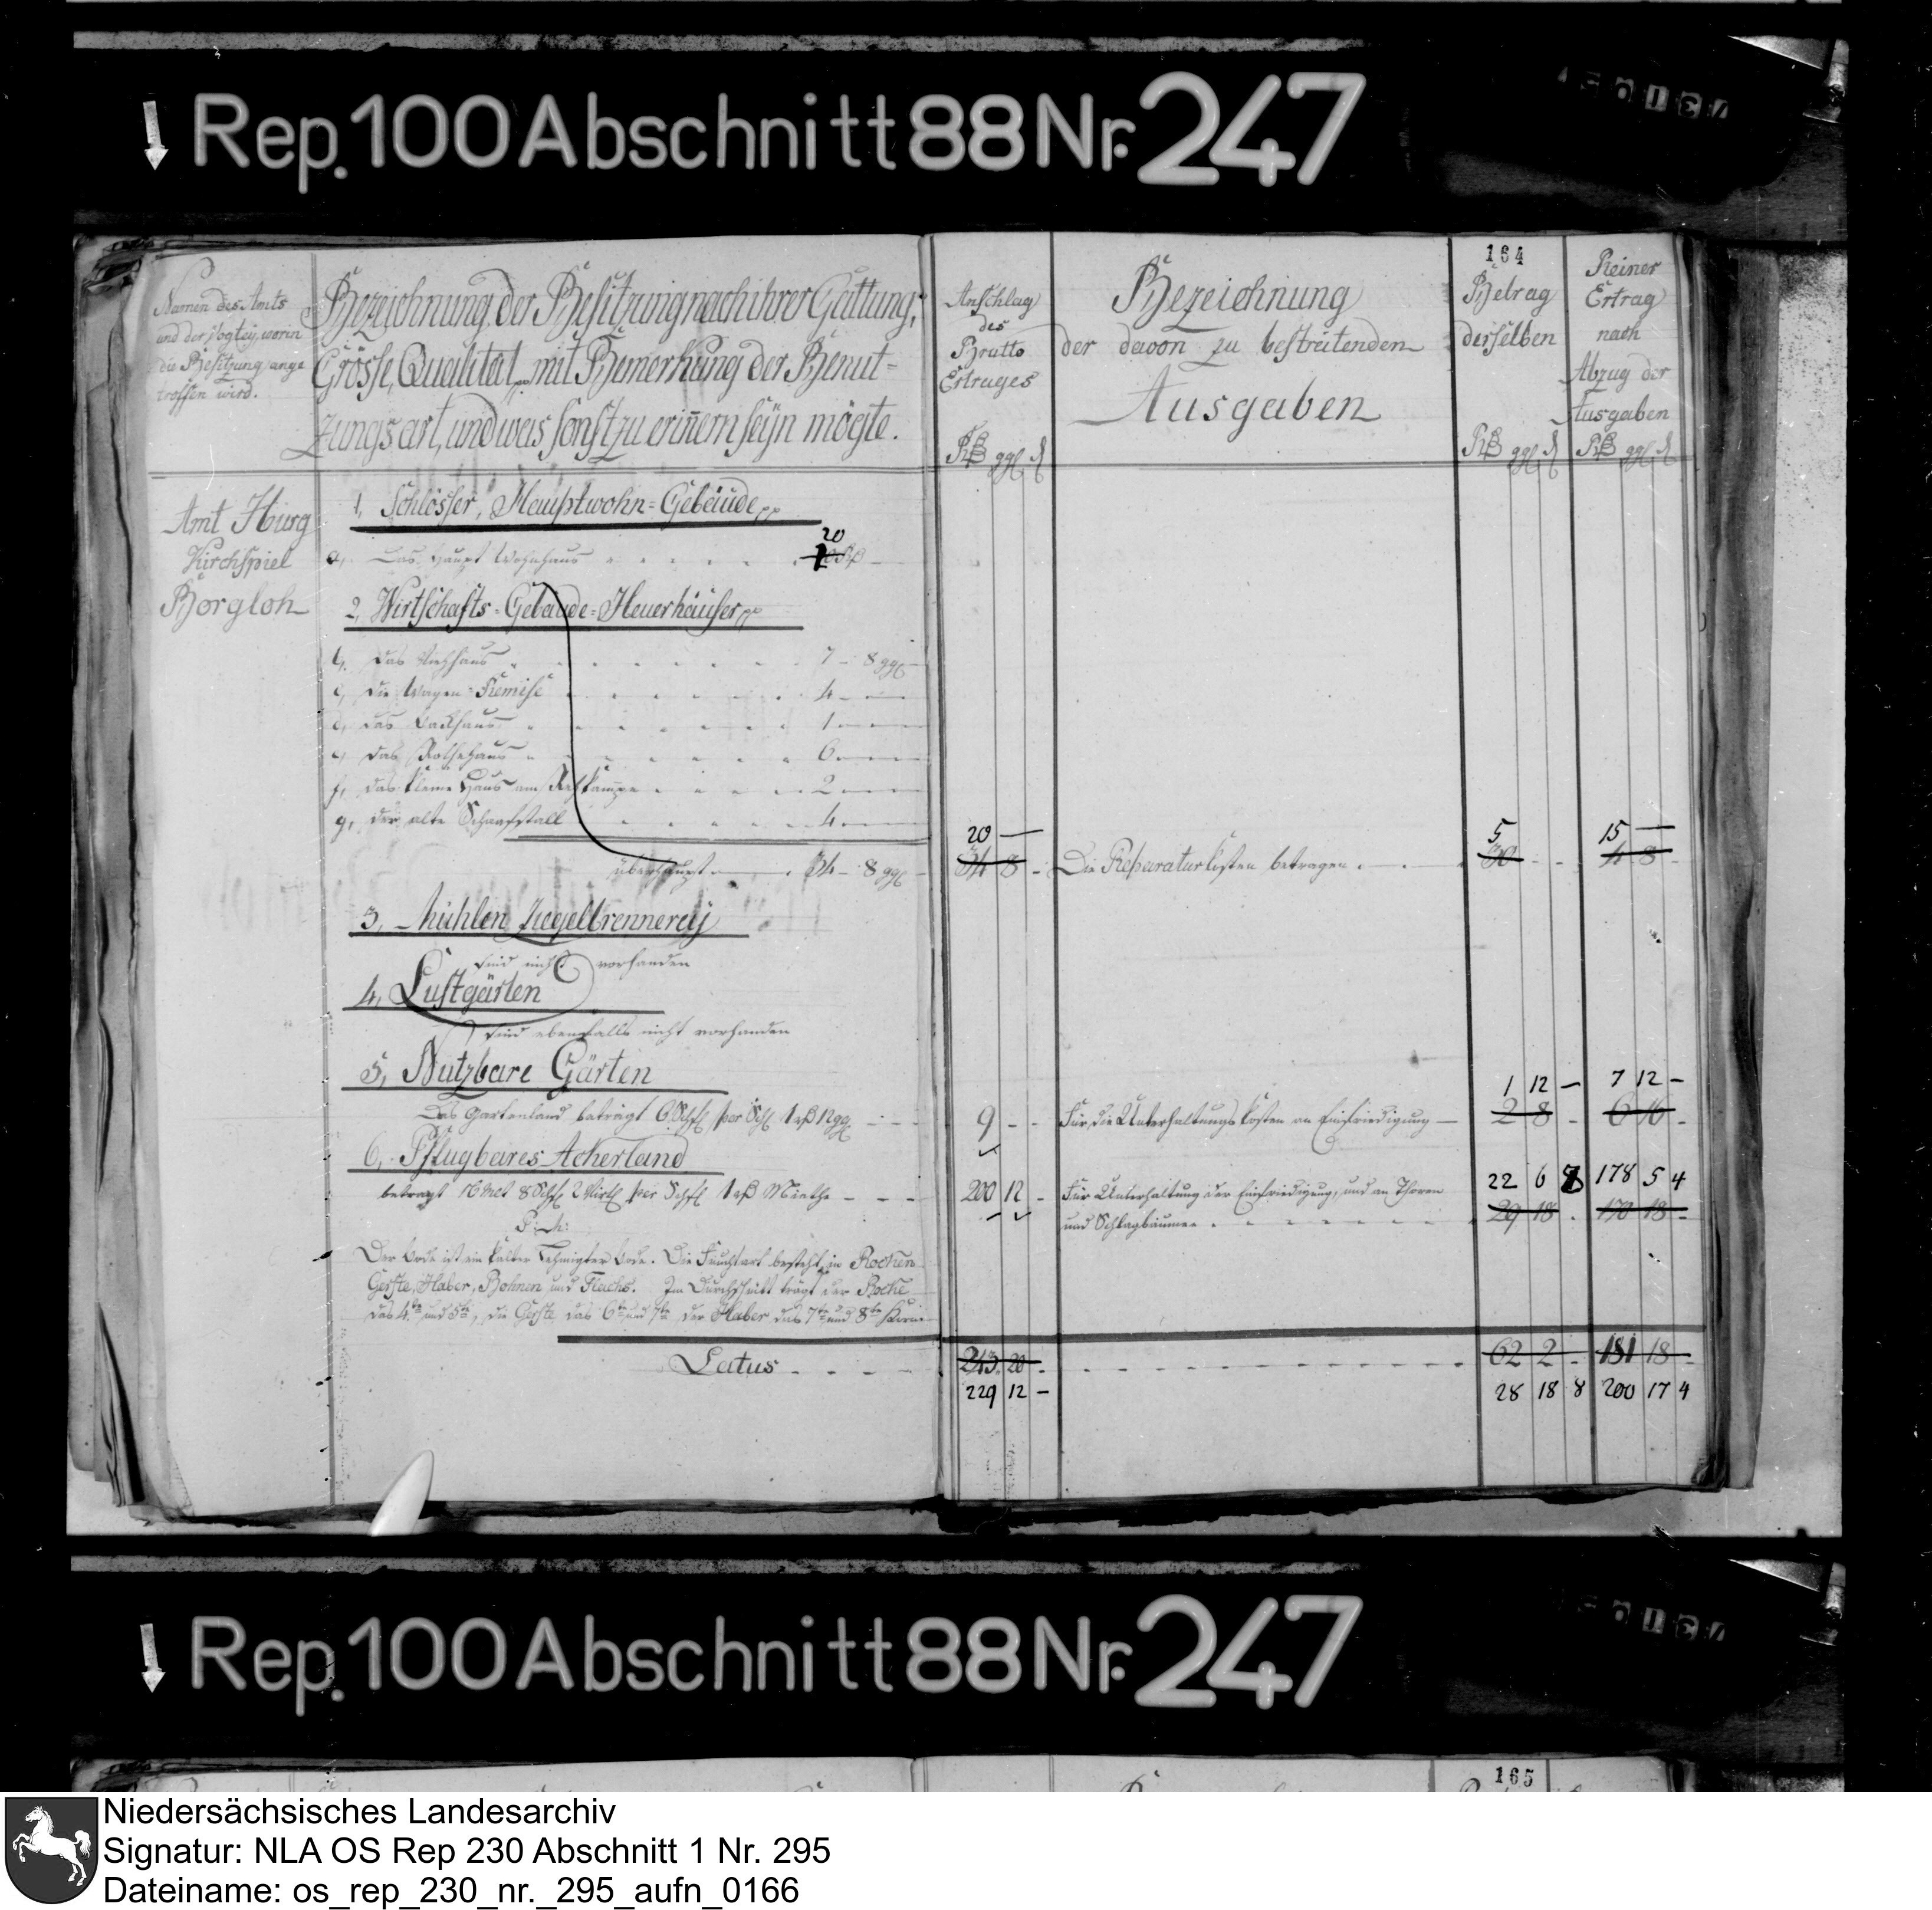 Rep. 100 Abschnitt 88 Nr. 247
164
Namen des Amts
und der Vogtey, worin
die Besitzung ange
troffen wird.
Bezeichnung der Besitzung nach ihrer Gattung,
Grösse, Qualität, mit Bemerkung der Benut=
zungsart, und was sonst zu erinnern seyn mögte.
Anschlag
des
Brutto
Ertrages
Rß ggl d
Bezeichnung
der davon zu bestreitenden
Ausgaben
Betrag
derselben
Rß ggl d
Reiner
Ertrag
nach
Abzug der
Ausgaben
Rß ggl d
Amt Iburg
Kirchspiel
Borgloh
1, Schlösser, Hauptwohn=Gebäude pp
a, Das Haupt Wohnhaus 20
2, Wirtschafts=Gebäude=Heuerhäuser pp
b, das Viehhaus 7 - 8 ggl
c, die Wagen Remise 4
d, das Backhaus 1
e, das Rothehaus 6
f, das kleine Haus am 2
g, der alte Schaafstall 4
20 — 5 15 —
überhaupt 34 - 8 ggl 34 8 - Die Reparaturkosten betragen 30 - - 4 8 -
3, Mühlen Ziegelbrennerey
sind nicht vorhanden
4, Lustgärten
sind ebenfalls nicht vorhanden
5, Nutzbare Gärten
1 12 — 7 12 —
Das Gartenland beträgt 6 Schfl per Schfl 1 rß 12 ggl 9 - - Für die Unterhaltungs Kosten an Einfriedigung 2 8 - 6 16 -
6, Pflugbares Ackerland
22 6 8 178 5 4
beträgt 16 Mlt 8 Schfl 2 Virtl per Schfl 1 rß Miethe 200 12 - Für Unterhaltung der Einfriedigung, und an Thoren
und Schlagbäumen 29 18 - 170 18 -
P: M:
Der Bode ist ein kalter Lehmigter Bode. Die Fruchtart besteht in Rocken
Gerste, Haber, Bohnen und Flachs. Im Durchschnitt trägt der Rocke
das 4te und 5te, die Gerste das 6te und 7te der Haber das 7te und 8te Korn
Latus 243 20 - 62 2 - 181 18 -
229 12 — 28 18 8 200 17 4
Rep. 100 Abschnitt 88 Nr. 247
165
Niedersächsisches Landesarchiv
Signatur: NLA OS Rep 230 Abschnitt 1 Nr. 295
Dateiname: os_rep_230_nr._295_aufn_0166